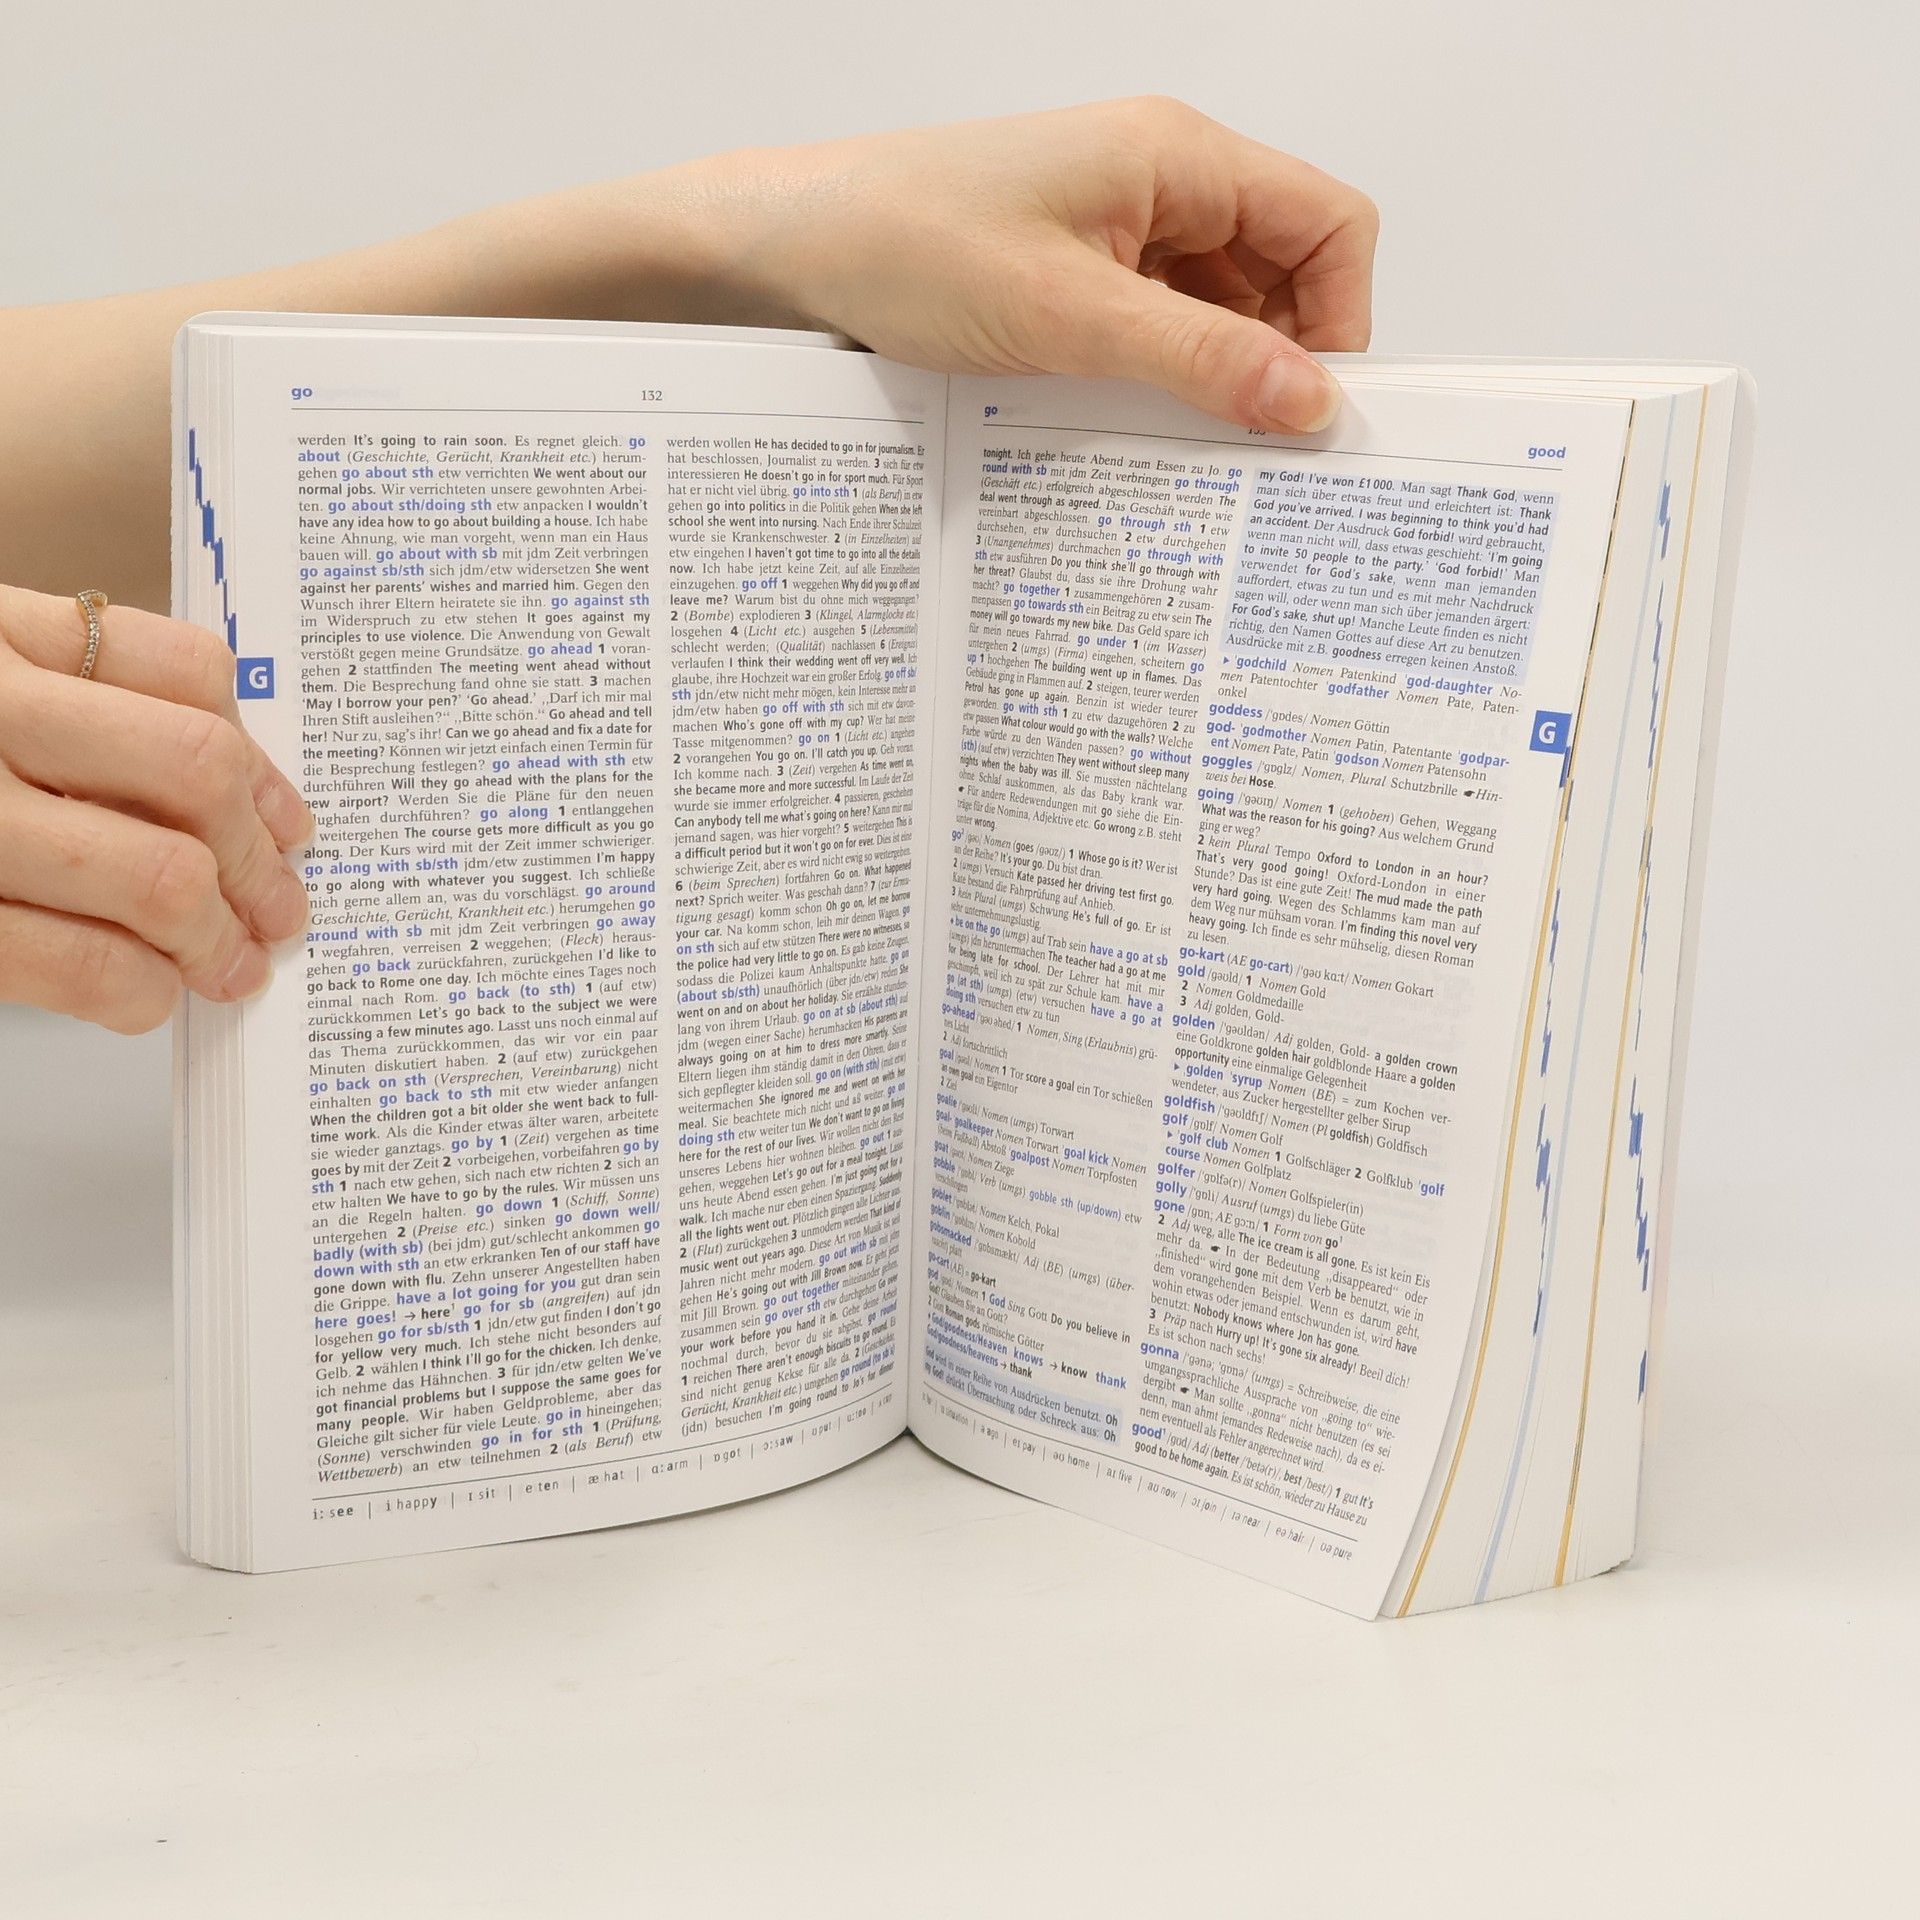 go
132
werden It's going to rain soon. Es regnet gleich. go
about (Geschichte, Gerücht, Krankheit etc.) herum-
gehen go about sth etw verrichten We went about our
normal jobs. Wir verrichteten unsere gewohnten Arbei-
ten. go about sth/doing sth etw anpacken I wouldn't
have any idea how to go about building a house. Ich habe
keine Ahnung, wie man vorgeht, wenn man ein Haus
bauen will. go about with sb mit jdm Zeit verbringen
go against sb/sth sich jdm/etw widersetzen She went
against her parents' wishes and married him. Gegen den
Wunsch ihrer Eltern heiratete sie ihn. go against sth
im Widerspruch zu etw stehen It goes against my
principles to use violence. Die Anwendung von Gewalt
verstößt gegen meine Grundsätze. go ahead 1 voran-
gehen 2 stattfinden The meeting went ahead without
them. Die Besprechung fand ohne sie statt. 3 machen
'May I borrow your pen?' 'Go ahead.' „Darf ich mir mal
Ihren Stift ausleihen?“ „Bitte schön.“ Go ahead and tell
her! Nur zu, sag's ihr! Can we go ahead and fix a date for
the meeting? Können wir jetzt einfach einen Termin für
die Besprechung festlegen? go ahead with sth etw
durchführen Will they go ahead with the plans for the
new airport? Werden Sie die Pläne für den neuen
lughafen durchführen? go along 1 entlanggehen
weitergehen The course gets more difficult as you go
along. Der Kurs wird mit der Zeit immer schwieriger.
go along with sb/sth jdm/etw zustimmen I'm happy
to go along with whatever you suggest. Ich schließe
mich gerne allem an, was du vorschlägst. go around
Geschichte, Gerücht, Krankheit etc.) herumgehen go
around with sb mit jdm Zeit verbringen go away
1 wegfahren, verreisen 2 weggehen; (Fleck) heraus-
gehen go back zurückfahren, zurückgehen I'd like to
go back to Rome one day. Ich möchte eines Tages noch
einmal nach Rom. go back (to sth) 1 (auf etw)
zurückkommen Let's go back to the subject we were
discussing a few minutes ago. Lasst uns noch einmal auf
das Thema zurückkommen, das wir vor ein paar
Minuten diskutiert haben. 2 (auf etw) zurückgehen
go back on sth (Versprechen, Vereinbarung) nicht
einhalten go back to sth mit etw wieder anfangen
When the children got a bit older she went back to full-
time work. Als die Kinder etwas älter waren, arbeitete
sie wieder ganztags. go by 1 (Zeit) vergehen as time
goes by mit der Zeit 2 vorbeigehen, vorbeifahren go by
sth 1 nach etw gehen, sich nach etw richten 2 sich an
etw halten We have to go by the rules. Wir müssen uns
an die Regeln halten. go down 1 (Schiff, Sonne)
untergehen 2 (Preise etc.) sinken go down well/
badly (with sb) (bei jdm) gut/schlecht ankommen go
down with sth an etw erkranken Ten of our staff have
gone down with flu. Zehn unserer Angestellten haben
die Grippe. have a lot going for you gut dran sein
here goes! → here¹ go for sb (angreifen) auf jdn
losgehen go for sb/sth 1 jdn/etw gut finden I don't go
for yellow very much. Ich stehe nicht besonders auf
Gelb. 2 wählen I think I'll go for the chicken. Ich denke,
ich nehme das Hähnchen. 3 für jdn/etw gelten We've
got financial problems but I suppose the same goes for
many people. Wir haben Geldprobleme, aber das
Gleiche gilt sicher für viele Leute. go in hineingehen;
(Sonne) verschwinden go in for sth 1 (Prüfung,
Wettbewerb) an etw teilnehmen 2 (als Beruf) etw
werden wollen He has decided to go in for journalism. Er
hat beschlossen, Journalist zu werden. 3 sich für etw
interessieren He doesn't go in for sport much. Für Sport
hat er nicht viel übrig. go into sth 1 (als Beruf) in etw
gehen go into politics in die Politik gehen When she left
school she went into nursing. Nach Ende ihrer Schulzeit
wurde sie Krankenschwester. 2 (in Einzelheiten) auf
etw eingehen I haven't got time to go into all the details
now. Ich habe jetzt keine Zeit, auf alle Einzelheiten
einzugehen. go off 1 weggehen Why did you go off and
leave me? Warum bist du ohne mich weggegangen?
2 (Bombe) explodieren 3 (Klingel, Alarmglocke etc.)
losgehen 4 (Licht etc.) ausgehen 5 (Lebensmittel)
schlecht werden; (Qualität) nachlassen 6 (Ereignis)
verlaufen I think their wedding went off very well. Ich
glaube, ihre Hochzeit war ein großer Erfolg. go off sb/
sth jdn/etw nicht mehr mögen, kein Interesse mehr an
jdm/etw haben go off with sth sich mit etw davon-
machen Who's gone off with my cup? Wer hat meine
Tasse mitgenommen? go on 1 (Licht etc.) angehen
2 vorangehen You go on. I'll catch you up. Geh voran.
Ich komme nach. 3 (Zeit) vergehen As time went on,
she became more and more successful. Im Laufe der Zeit
wurde sie immer erfolgreicher. 4 passieren, geschehen
Can anybody tell me what's going on here? Kann mir mal
jemand sagen, was hier vorgeht? 5 weitergehen This is
a difficult period but it won't go on for ever. Dies ist eine
schwierige Zeit, aber es wird nicht ewig so weitergehen.
6 (beim Sprechen) fortfahren Go on. What happened
next? Sprich weiter. Was geschah dann? 7 (zur Ermu-
tigung gesagt) komm schon Oh go on, let me borrow
your car. Na komm schon, leih mir deinen Wagen. go
on sth sich auf etw stützen There were no witnesses, so
the police had very little to go on. Es gab keine Zeugen,
sodass die Polizei kaum Anhaltspunkte hatte. go on
(about sb/sth) unaufhörlich (über jdn/etw) reden She
went on and on about her holiday. Sie erzählte stunden-
lang von ihrem Urlaub. go on at sb (about sth) auf
jdm (wegen einer Sache) herumhacken His parents are
always going on at him to dress more smartly. Seine
Eltern liegen ihm ständig damit in den Ohren, dass er
sich gepflegter kleiden soll. go on (with sth) (mit etw)
weitermachen She ignored me and went on with her
meal. Sie beachtete mich nicht und aß weiter. go on
doing sth etw weiter tun We don't want to go on living
here for the rest of our lives. Wir wollen nicht den Rest
unseres Lebens hier wohnen bleiben. go out 1 aus-
gehen, weggehen Let's go out for a meal tonight. Lasst
uns heute Abend essen gehen. I'm just going out for a
walk. Ich mache nur eben einen Spaziergang. Suddenly
all the lights went out. Plötzlich gingen alle Lichter aus.
2 (Flut) zurückgehen 3 unmodern werden That kind of
music went out years ago. Diese Art von Musik ist seit
Jahren nicht mehr modern. go out with sb mit jdm
gehen He's going out with Jill Brown now. Er geht jetzt
mit Jill Brown. go out together miteinander gehen,
zusammen sein go over sth etw durchgehen Go over
your work before you hand it in. Gehe deine Arbeit
nochmal durch, bevor du sie abgibst. go round
1 reichen There aren't enough biscuits to go round. Es
sind nicht genug Kekse für alle da. 2 (Geschichte,
Gerücht, Krankheit etc.) umgehen go round (to sb's)
(jdn) besuchen I'm going round to Jo's for dinner
i: see | i happy | ɪ sit | e ten | æ hat | ɑ: arm | ɒ got | ɔ: saw | ʊ put | u: too
G
go
good
tonight. Ich gehe heute Abend zum Essen zu Jo. go
round with sb mit jdm Zeit verbringen go through
(Geschäft etc.) erfolgreich abgeschlossen werden The
deal went through as agreed. Das Geschäft wurde wie
vereinbart abgeschlossen. go through sth 1 etw
durchsehen, etw durchsuchen 2 etw durchgehen
3 (Unangenehmes) durchmachen go through with
sth etw ausführen Do you think she'll go through with
her threat? Glaubst du, dass sie ihre Drohung wahr
macht? go together 1 zusammengehören 2 zusam-
menpassen go towards sth ein Beitrag zu etw sein The
money will go towards my new bike. Das Geld spare ich
für mein neues Fahrrad. go under 1 (im Wasser)
untergehen 2 (umgs) (Firma) eingehen, scheitern go
up 1 hochgehen The building went up in flames. Das
Gebäude ging in Flammen auf. 2 steigen, teurer werden
Petrol has gone up again. Benzin ist wieder teurer
geworden. go with sth 1 zu etw dazugehören 2 zu
etw passen What colour would go with the walls? Welche
Farbe würde zu den Wänden passen? go without
(sth) (auf etw) verzichten They went without sleep many
nights when the baby was ill. Sie mussten nächtelang
ohne Schlaf auskommen, als das Baby krank war.
☛ Für andere Redewendungen mit go siehe die Ein-
träge für die Nomina, Adjektive etc. Go wrong z.B. steht
unter wrong.
go² /gəʊ/ Nomen (goes /gəʊz/) 1 Whose go is it? Wer ist
an der Reihe? It's your go. Du bist dran.
2 (umgs) Versuch Kate passed her driving test first go.
Kate bestand die Fahrprüfung auf Anhieb.
3 kein Plural (umgs) Schwung He's full of go. Er ist
sehr unternehmungslustig.
♦ be on the go (umgs) auf Trab sein have a go at sb
(umgs) jdn heruntermachen The teacher had a go at me
for being late for school. Der Lehrer hat mit mir
geschimpft, weil ich zu spät zur Schule kam. have a
go (at sth) (umgs) (etw) versuchen have a go at
doing sth versuchen etw zu tun
go-ahead /ˈgəʊəhed/ 1 Nomen, Sing (Erlaubnis) grü-
nes Licht
2 Adj fortschrittlich
goal /gəʊl/ Nomen 1 Tor score a goal ein Tor schießen
an own goal ein Eigentor
2 Ziel
goalie /ˈgəʊli/ Nomen (umgs) Torwart
goal- goalkeeper Nomen Torwart ˈgoal kick Nomen
(beim Fußball) Abstoß ˈgoalpost Nomen Torpfosten
goat /gəʊt/ Nomen Ziege
gobble /ˈgɒbl/ Verb (umgs) gobble sth (up/down) etw
verschlingen
goblet /ˈgɒblət/ Nomen Kelch, Pokal
goblin /ˈgɒblɪn/ Nomen Kobold
gobsmacked /ˈgɒbsmækt/ Adj (BE) (umgs) (über-
rascht) platt
go-cart (AE) = go-kart
god /gɒd/ Nomen 1 God Sing Gott Do you believe in
God? Glauben Sie an Gott?
2 Gott Roman gods römische Götter
♦ God/goodness/Heaven knows → know thank
God/goodness/heavens → thank
God wird in einer Reihe von Ausdrücken benutzt. Oh
my God! drückt Überraschung oder Schreck aus: Oh
my God! I've won £1000. Man sagt Thank God, wenn
man sich über etwas freut und erleichtert ist: Thank
God you've arrived. I was beginning to think you'd had
an accident. Der Ausdruck God forbid! wird gebraucht,
wenn man nicht will, dass etwas geschieht: 'I'm going
to invite 50 people to the party.' 'God forbid!' Man
verwendet for God's sake, wenn man jemanden
auffordert, etwas zu tun und es mit mehr Nachdruck
sagen will, oder wenn man sich über jemanden ärgert:
For God's sake, shut up! Manche Leute finden es nicht
richtig, den Namen Gottes auf diese Art zu benutzen.
Ausdrücke mit z.B. goodness erregen keinen Anstoß.
▶ ˈgodchild Nomen Patenkind ˈgod-daughter No-
men Patentochter ˈgodfather Nomen Pate, Paten-
onkel
goddess /ˈgɒdes/ Nomen Göttin
god- ˈgodmother Nomen Patin, Patentante ˈgodpar-
ent Nomen Pate, Patin ˈgodson Nomen Patensohn
goggles /ˈgɒglz/ Nomen, Plural Schutzbrille ☛ Hin-
weis bei Hose.
going /ˈgəʊɪŋ/ Nomen 1 (gehoben) Gehen, Weggang
What was the reason for his going? Aus welchem Grund
ging er weg?
2 kein Plural Tempo Oxford to London in an hour?
That's very good going! Oxford-London in einer
Stunde? Das ist eine gute Zeit! The mud made the path
very hard going. Wegen des Schlamms kam man auf
dem Weg nur mühsam voran. I'm finding this novel very
heavy going. Ich finde es sehr mühselig, diesen Roman
zu lesen.
go-kart (AE go-cart) /ˈgəʊ kɑ:t/ Nomen Gokart
gold /gəʊld/ 1 Nomen Gold
2 Nomen Goldmedaille
3 Adj golden, Gold-
golden /ˈgəʊldən/ Adj golden, Gold- a golden crown
eine Goldkrone golden hair goldblonde Haare a golden
opportunity eine einmalige Gelegenheit
▶ golden ˈsyrup Nomen (BE) = zum Kochen ver-
wendeter, aus Zucker hergestellter gelber Sirup
goldfish /ˈgəʊldfɪʃ/ Nomen (Pl goldfish) Goldfisch
golf /gɒlf/ Nomen Golf
▶ ˈgolf club Nomen 1 Golfschläger 2 Golfklub ˈgolf
course Nomen Golfplatz
golfer /ˈgɒlfə(r)/ Nomen Golfspieler(in)
golly /ˈgɒli/ Ausruf (umgs) du liebe Güte
gone /gɒn; AE gɔ:n/ 1 Form von go¹
2 Adj weg, alle The ice cream is all gone. Es ist kein Eis
mehr da. ☛ In der Bedeutung „disappeared“ oder
„finished“ wird gone mit dem Verb be benutzt, wie in
dem vorangehenden Beispiel. Wenn es darum geht,
wohin etwas oder jemand entschwunden ist, wird have
benutzt: Nobody knows where Jon has gone.
3 Präp nach Hurry up! It's gone six already! Beeil dich!
Es ist schon nach sechs!
gonna /ˈgənə; ˈgɒnə/ (umgs) = Schreibweise, die eine
umgangssprachliche Aussprache von „going to“ wie-
dergibt ☛ Man sollte „gonna“ nicht benutzen (es sei
denn, man ahmt jemandes Redeweise nach), da es ei-
nem eventuell als Fehler angerechnet wird.
good¹ /gʊd/ Adj (better /ˈbetə(r)/, best /best/) 1 gut It's
good to be home again. Es ist schön, wieder zu Hause zu
ə ago | eɪ pay | əʊ home | aɪ five | aʊ now | ɔɪ join | ɪə near | eə hair | ʊə pure
G